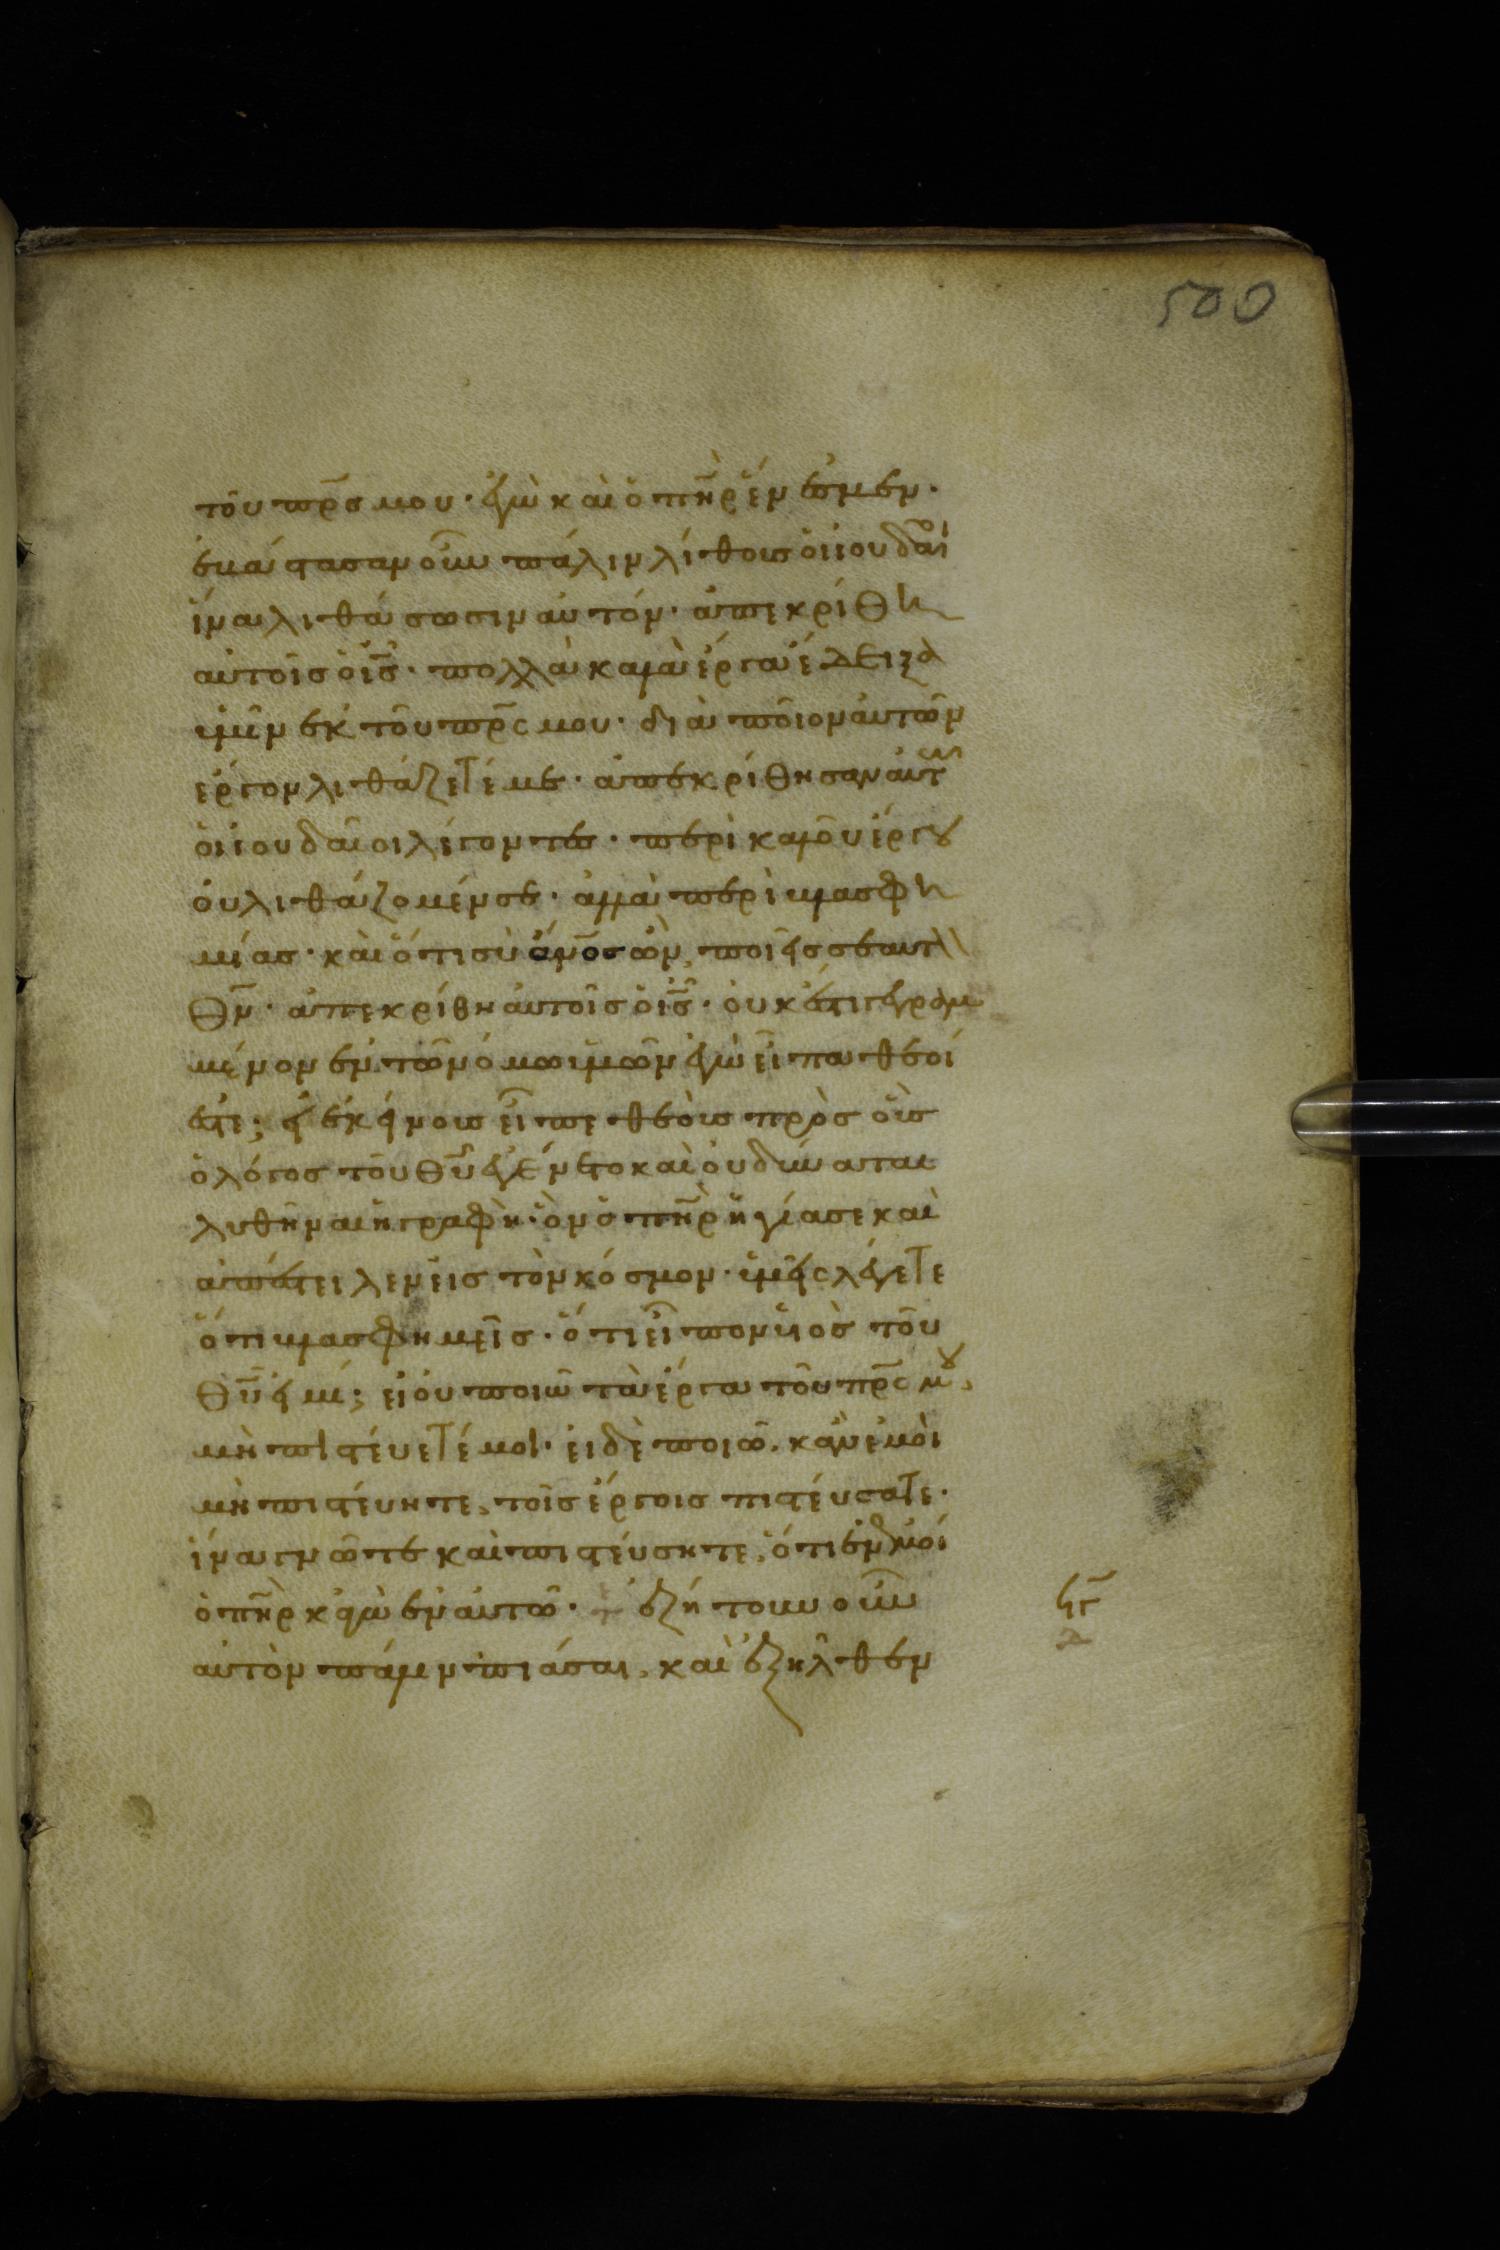 500
τοῦ πρ̅ς μου· ἐγὼ καὶ ὁ πη̅ρ ἕν ἐσμεν·
ἐβάστασαν οὖν πάλιν λίθους οἱ ἰουδαῖοι
ἵνα λιθάσωσιν αὐτόν· ἀπεκρίθη
αὐτοῖς ὁ ι̅ς· πολλὰ καλὰ ἔργα ἔδειξα
ὑμῖν ἐκ τοῦ πρ̅ς μου· διὰ ποῖον αὐτῶν
ἔργον λιθάζετέ με· ἀπεκρίθησαν αὐτῶ
οἱ ἰουδαῖοι λέγοντες· περὶ καλοῦ ἔργου
οὐ λιθάζομέν σε· ἀλλὰ περὶ βλασφη
μίας· καὶ ὅτι σὺ ἄν̅ος ὢν, ποιεῖς σεαυτὸν
θ̅ν· ἀπεκρίθη αὐτοῖς ὁ ι̅ς· οὐκ ἔστι γεγραμ
μένον ἐν τῶ νόμω ὑμῶν ἐγὼ εἶπα θεοί
ἐστε; εἰ ἐκείνους εἶπε θεοὺς πρὸς οὓς
ὁ λόγος τοῦ θ̅υ ἐγένετο καὶ οὐ δύναται
λυθῆναι ἡ γραφή· ὃν ὁ πη̅ρ ἡγίασε καὶ
ἀπέστειλεν εἰς τὸν κόσμον· ὑμεῖς λέγετε
ὅτι βλασφημεῖς· ὅτι εἶπον υἱὸς τοῦ
θ̅υ εἰμί; εἰ οὐ ποιῶ τὰ ἔργα τοῦ πρ̅ς μου,
μὴ πιστεύετέ μοι· εἰ δὲ ποιῶ, κἂν ἐμοὶ
μὴ πιστεύητε, τοῖς ἔργοις πιστεύσατε·
ἵνα γνῶτε καὶ πιστεύσητε, ὅτι ἐν ἐμοί
ὁ πη̅ρ κἀγὼ ἐν αὐτῶ· + ἐζήτουν οὖν
αὐτὸν πάλιν πιάσαι, καὶ ἐξῆλθεν